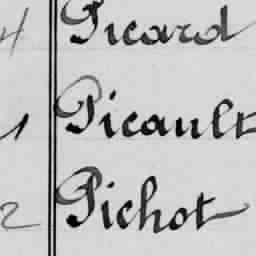 4 Picard
1 Picault
2 Pichot